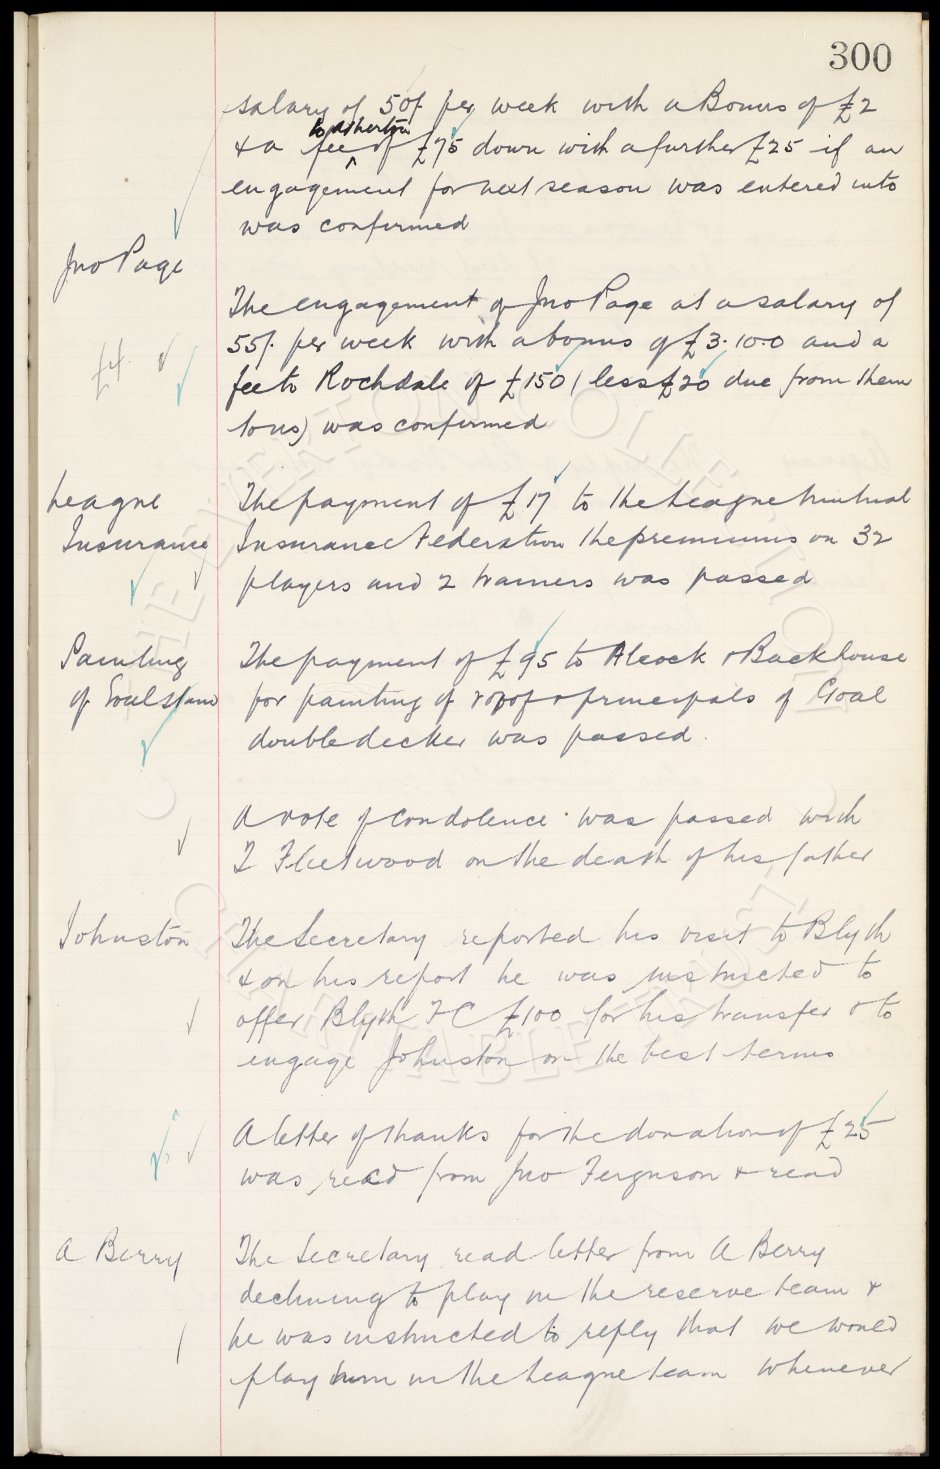 300
salary of 50/ per week with a Bonus of £2
to Atherton
& a fee of £75 down with a further £25 if an
engagement for next season was entered into
was confirmed
Jno Page
The engagement of Jno Page at a salary of
55/. per week with a bonus of £3.10.0 and a
£4.
fee to Rochdale of £150 (less £20 due from them
to us) was confirmed
League
The payment of £17 to the League Mutual
Insurance
Insurance Federation the premiums on 32
players and 2 trainers was passed
Painting
The payment of £95 to Alcock & Backhouse
of Goal stand
for painting of roof & principals of Goal
doubledecker was passed.
A vote of condolence was passed with
T Fleetwood on the death of his father
Johnston
The Secretary reported his visit to Blyth
& on his report he was instructed to
offer Blyth FC £100 for his transfer & to
engage Johnston on the best terms
A letter of thanks for the donation of £25
was read from Jno Ferguson & read
A Berry
The Secretary read letter from A Berry
declining to play in the reserve team &
he was instructed to reply that we would
play him in the League team whenever